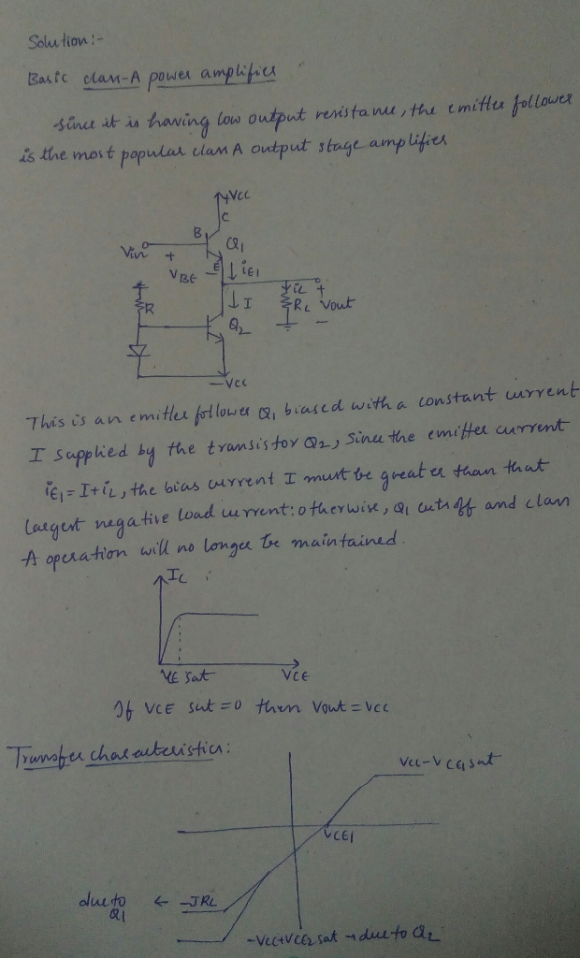 Solution:-
Basic class-A power amplifier
since it is having low output resistance, the emitter follower
is the most popular class A output stage amplifier
+VCC
C
B
Q1
Vin
+
VBE
-
E
iE1
iL
+
R
I
RL
Vout
Q2
-
-VCC
This is an emitter follower Q1 biased with a constant current
I supplied by the transistor Q2, Since the emitter current
iE1 = I+iL, the bias current I must be greater than that
largest negative load current: otherwise, Q1 cuts off and class
-A operation will no longer be maintained.
IC
VCE
If VCE sat =0 then Vout = VCC
Transfer characteristics:
VCC-VCE1 sat
VCE1
due to
Q1
← -IRL
-VCC+VCE2 sat → due to Q2